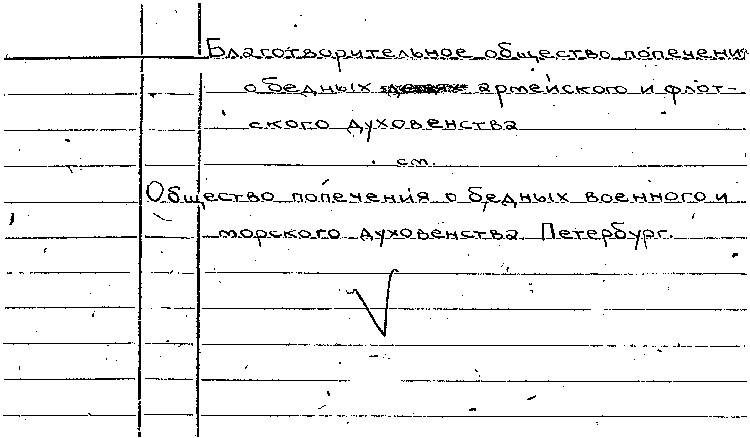 Благотворительное общество попечения
о бедных армейского и флот-
ского духовенства
см.
Общество попечения о бедных военного и
морского духовенства. Петербург.